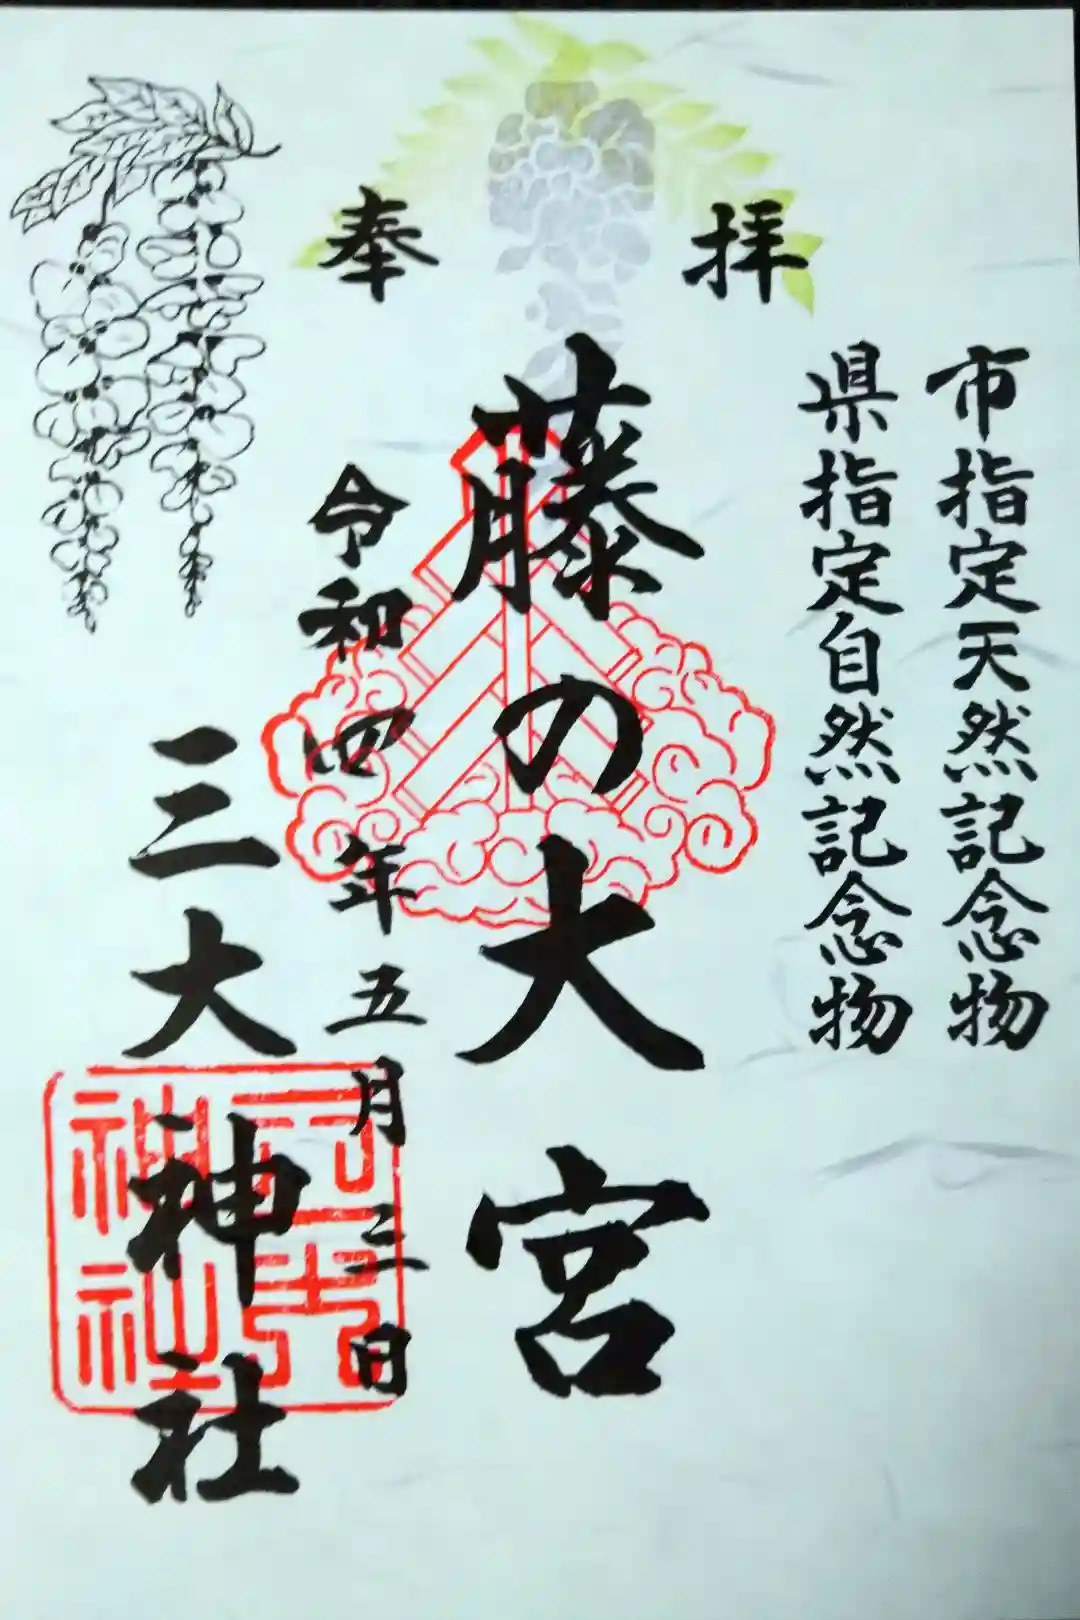 奉拝
市指定天然記念物
県指定自然記念物
藤の大宮
令和四年五月三日
三大神社
三大神社